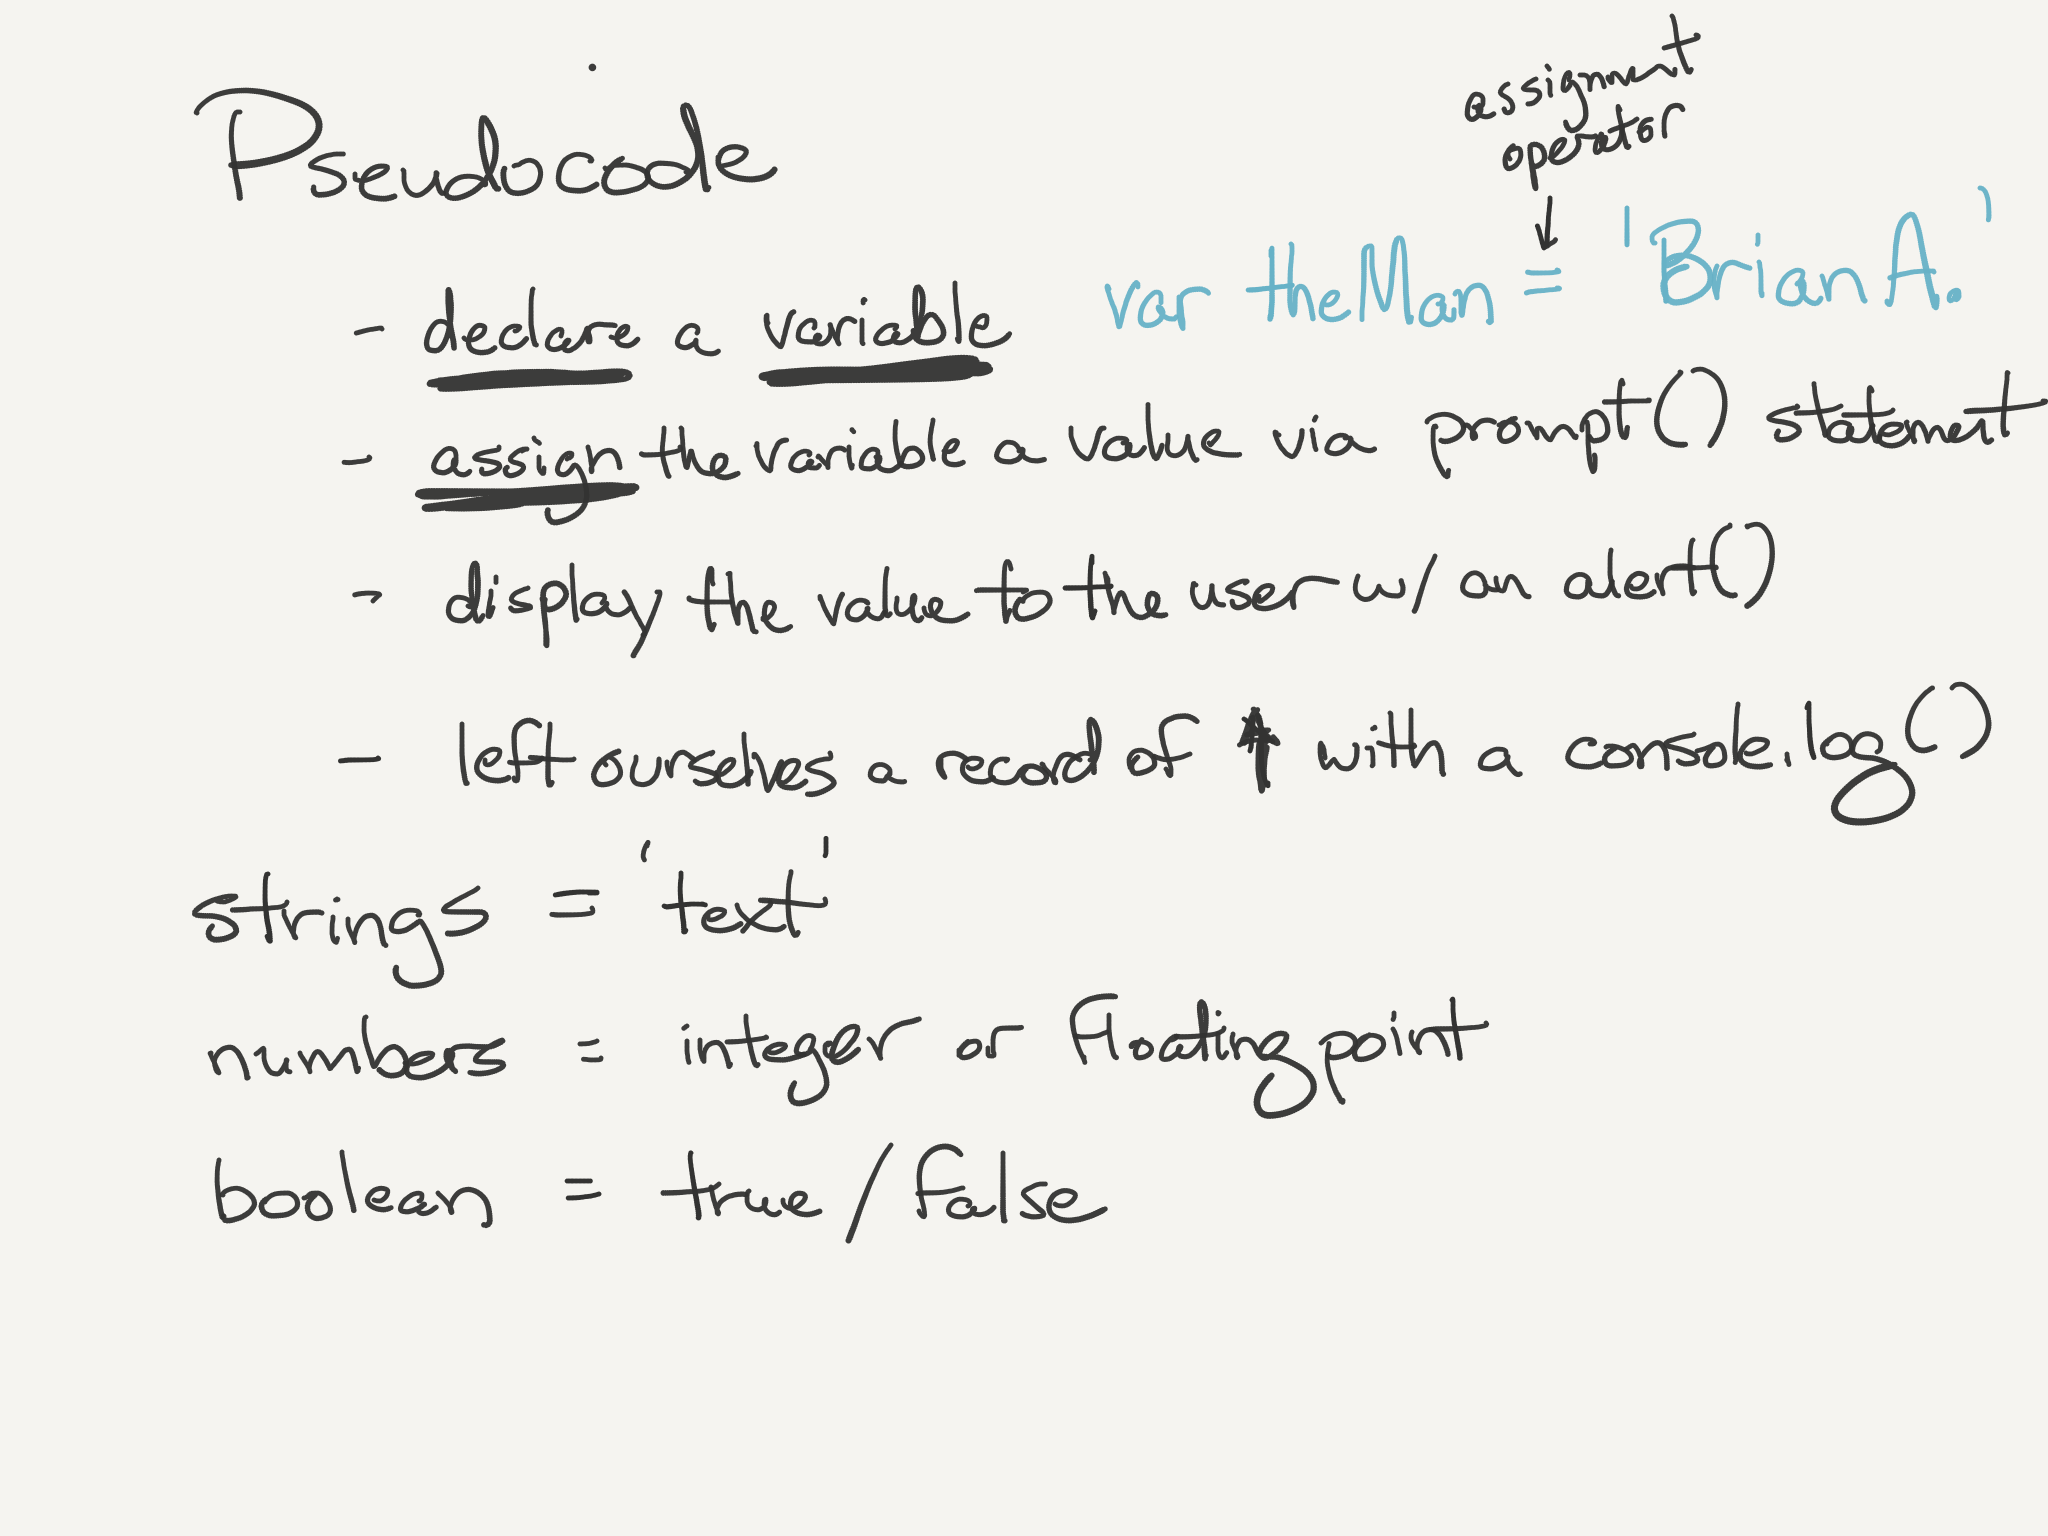 Pseudocode
assignment
operator
↓
- declare a variable var theMan = 'Brian A.'
- assign the variable a value via prompt() statement
- display the value to the user w/ an alert()
- left ourselves a record of ↑ with a console.log()
strings = 'text'
numbers = integer or floating point
boolean = true/false